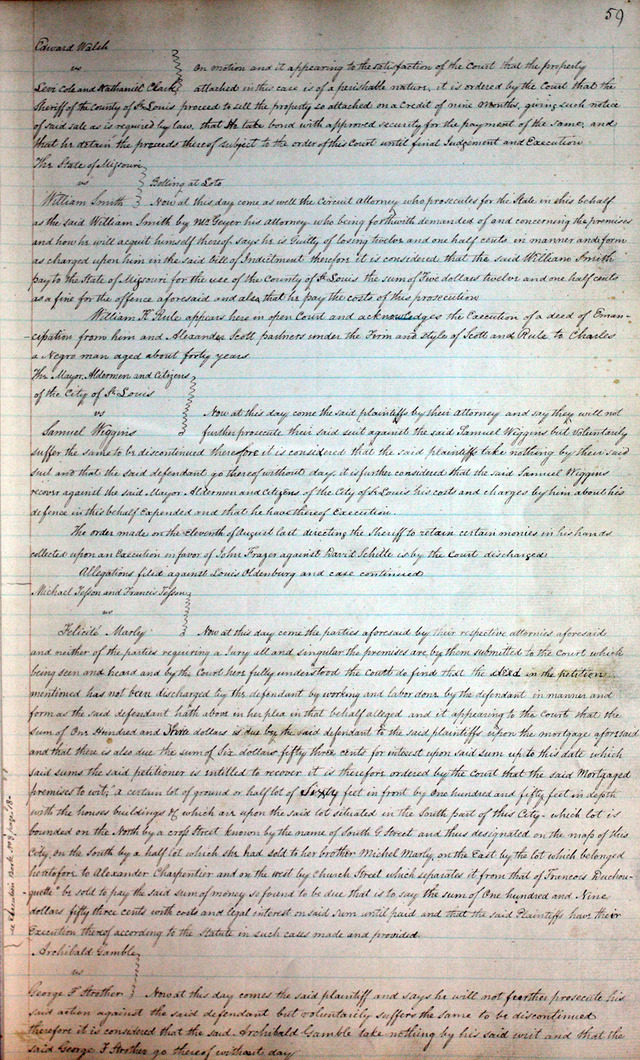 59
Edward Walsh
vs On motion and it appearing to the satisfaction of the Court that the property
Levi Cole and Nathaniel Clark attached in this case is of a perishable nature, it is ordered by the Court that the
Sheriff of the County of St Louis proceed to sell the property so attached on a credit of nine Months, giving such notice
of said sale as is required by law, that He take bond with approved security for the payment of the same, and
that he detain the proceeds thereof subject to the order of this Court until final Judgement and Execution
The State of Missouri
vs Betting at Loto
William Smith Now at this day come as well the Circuit Attorney who prosecutes for the State in this behalf
as the said William Smith by McGuyer his Attorney who being forthwith demanded of and concerning the premises
and how he will acquit himself thereof says he is Guilty of losing twelve and one half cents in manner and form
as charged upon him in the said bill of Indictment therefore it is considered that the said William Smith
pay to the State of Missouri for the use of the County of St Louis the sum of Five dollars twelve and one half cents
as a fine for the offence aforesaid and also that he pay the costs of this prosecution
William K Rule appears here in open Court and acknowledges the Execution of a deed of Eman-
-cipation from him and Alexander Scott partners under the Firm and style of Scott and Rule to Charles
a Negro man aged about forty years
The Mayor, Aldermen and Citizens
of the City of St Louis
vs Now at this day come the said plaintiffs by their Attorney and say they will not
Samuel Wiggins further prosecute their said suit against the said Samuel Wiggins but voluntarily
suffer the same to be discontinued therefore it is considered that the said plaintiffs take nothing by their said
suit and that the said defendant go thereof without day, it is further considered that the said Samuel Wiggins
recover against the said Mayor, Aldermen and Citizens of the City of St Louis his costs and charges by him about his
defence in this behalf Expended and that he have thereof Execution.
The order made on the eleventh of August last directing the Sheriff to retain certain monies in his hands
collected upon an Execution in favor of John Frazer against David Schilte is by the Court discharged
Allegations filed against Louis Oldenburg and case continued
Michael Tesson and Francis Tesson
vs
Felicite Marly Now at this day come the parties aforesaid by their respective attornies aforesaid
and neither of the parties requiring a Jury all and singular the premises are by them submitted to the Court which
being seen and heard and by the Court here fully understood the Court do find that the debt in the petition
mentioned has not been discharged by the defendant by working and labor done by the defendant in manner and
form as the said defendant hath above in her plea in that behalf alleged and it appearing to the Court that the
sum of One Hundred and three dollars is due by the said defendant to the said plaintiffs upon the mortgage aforesaid
and that there is also due the sum of Six dollars fifty three cents for interest upon said sum up to this date which
said sums the said petitioner is intitled to recover it is therefore ordered by the Court that the said Mortgaged
premises to wit, a certain lot of ground or half lot of Sixty feet in front by One hundred and fifty feet in depth
with the houses buildings &c which are upon the said lot situated in the South part of this City which lot is
bounded on the North by a cross Street known by the name of South E Street and thus designated on the map of this
City, on the South by a half lot which she had sold to her brother Michel Marly, on the East by the lot which belonged
heretofore to Alexander Charpentier and on the west by Church Street which separates it from that of Francois Duchou-
quette be sold to pay the said sum of money so found to be due that is to say the sum of One hundred and Nine
dollars fifty three cents with costs and legal interest on said Sum until paid and that the said Plaintiffs have their
Execution thereof according to the Statute in such cases made and provided
see Execution Book page 18
Archibald Gamble
vs
George F Strother Now at this day comes the said plaintiff and says he will not further prosecute his
said action against the said defendant but voluntarily suffers the same to be discontinued
therefore it is considered that the said Archibald Gamble take nothing by his said writ and that the
said George F Strother go thereof without day